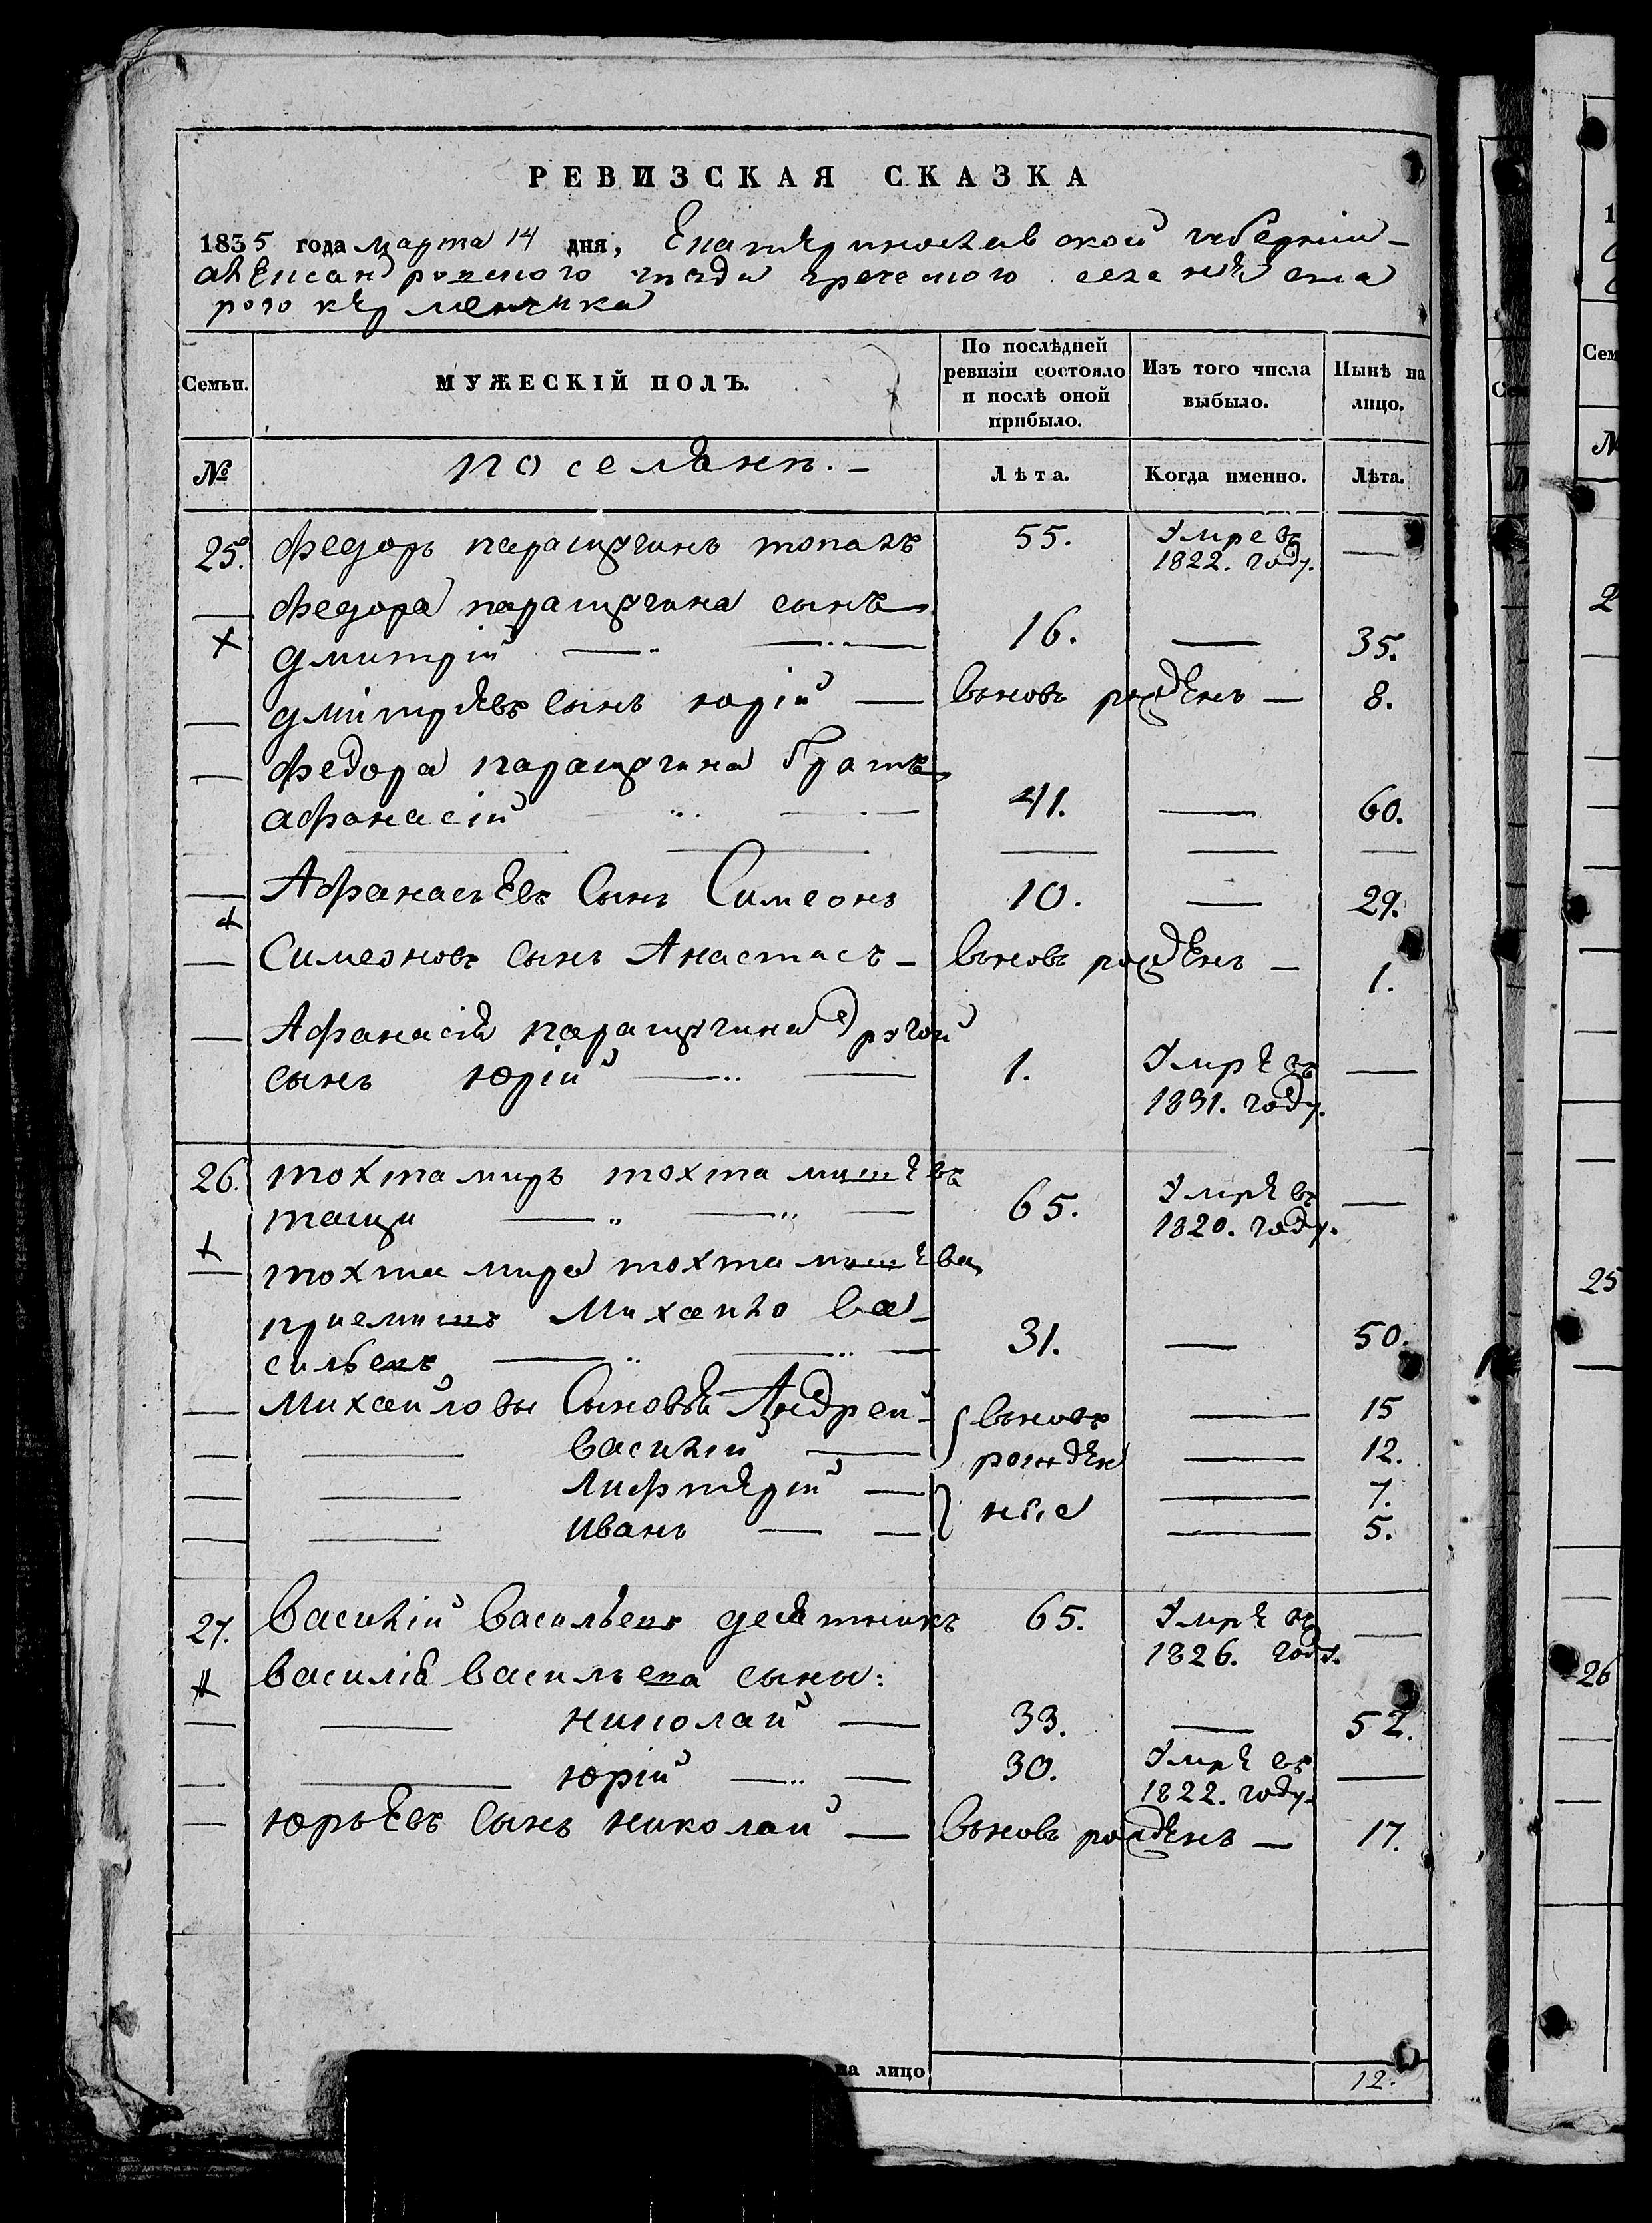 РЕВИЗСКАЯ СКАЗКА
1835 года марта 14 дня, Екатеринославской губернии
александровского уезда греческого селения ста
рого керменчика
Семьи. МУЖЕСКІЙ ПОЛЪ. По послѣдней ревизіи состояло и послѣ оной прибыло. Изъ того числа выбыло. Нынѣ на лицо.
№ поселянъ. Лѣта. Когда именно. Лѣта.
25. федоръ топалъ 55. Умре въ 1822. году. —
федора сынъ
дмитрій — 16. — 35.
дмитріевъ сынъ юрій — вновь рожденъ — 8.
федора братъ
афонасій 41. — 60.
Афанасьевъ сынъ Симеонъ 10. — 29.
Симеоновъ сынъ Анастасъ — вновь рожденъ — 1.
Афанасія другой
сынъ юрій — 1. Умре въ 1831. году. —
26. тохтамиръ тохтамишевъ
тащи 65. Умре въ 1820. году. —
тохтамира тохтамишева
приемишъ Михайло ва-
сильевъ — 31. — 50.
Михайловы сыновья Андрей — вновь — 15
василій — рожден — 12.
Лифтерій — ные — 7.
иванъ — — 5.
27. василій васильевъ десятникъ 65. Умре въ 1826. году. —
василія васильева сыны:
николай — 33. — 52.
юрій — 30. Умре въ 1822. году. —
юрьевъ сынъ николай — вновь рожденъ — 17.
на лицо 12.
Сем
№
25
26